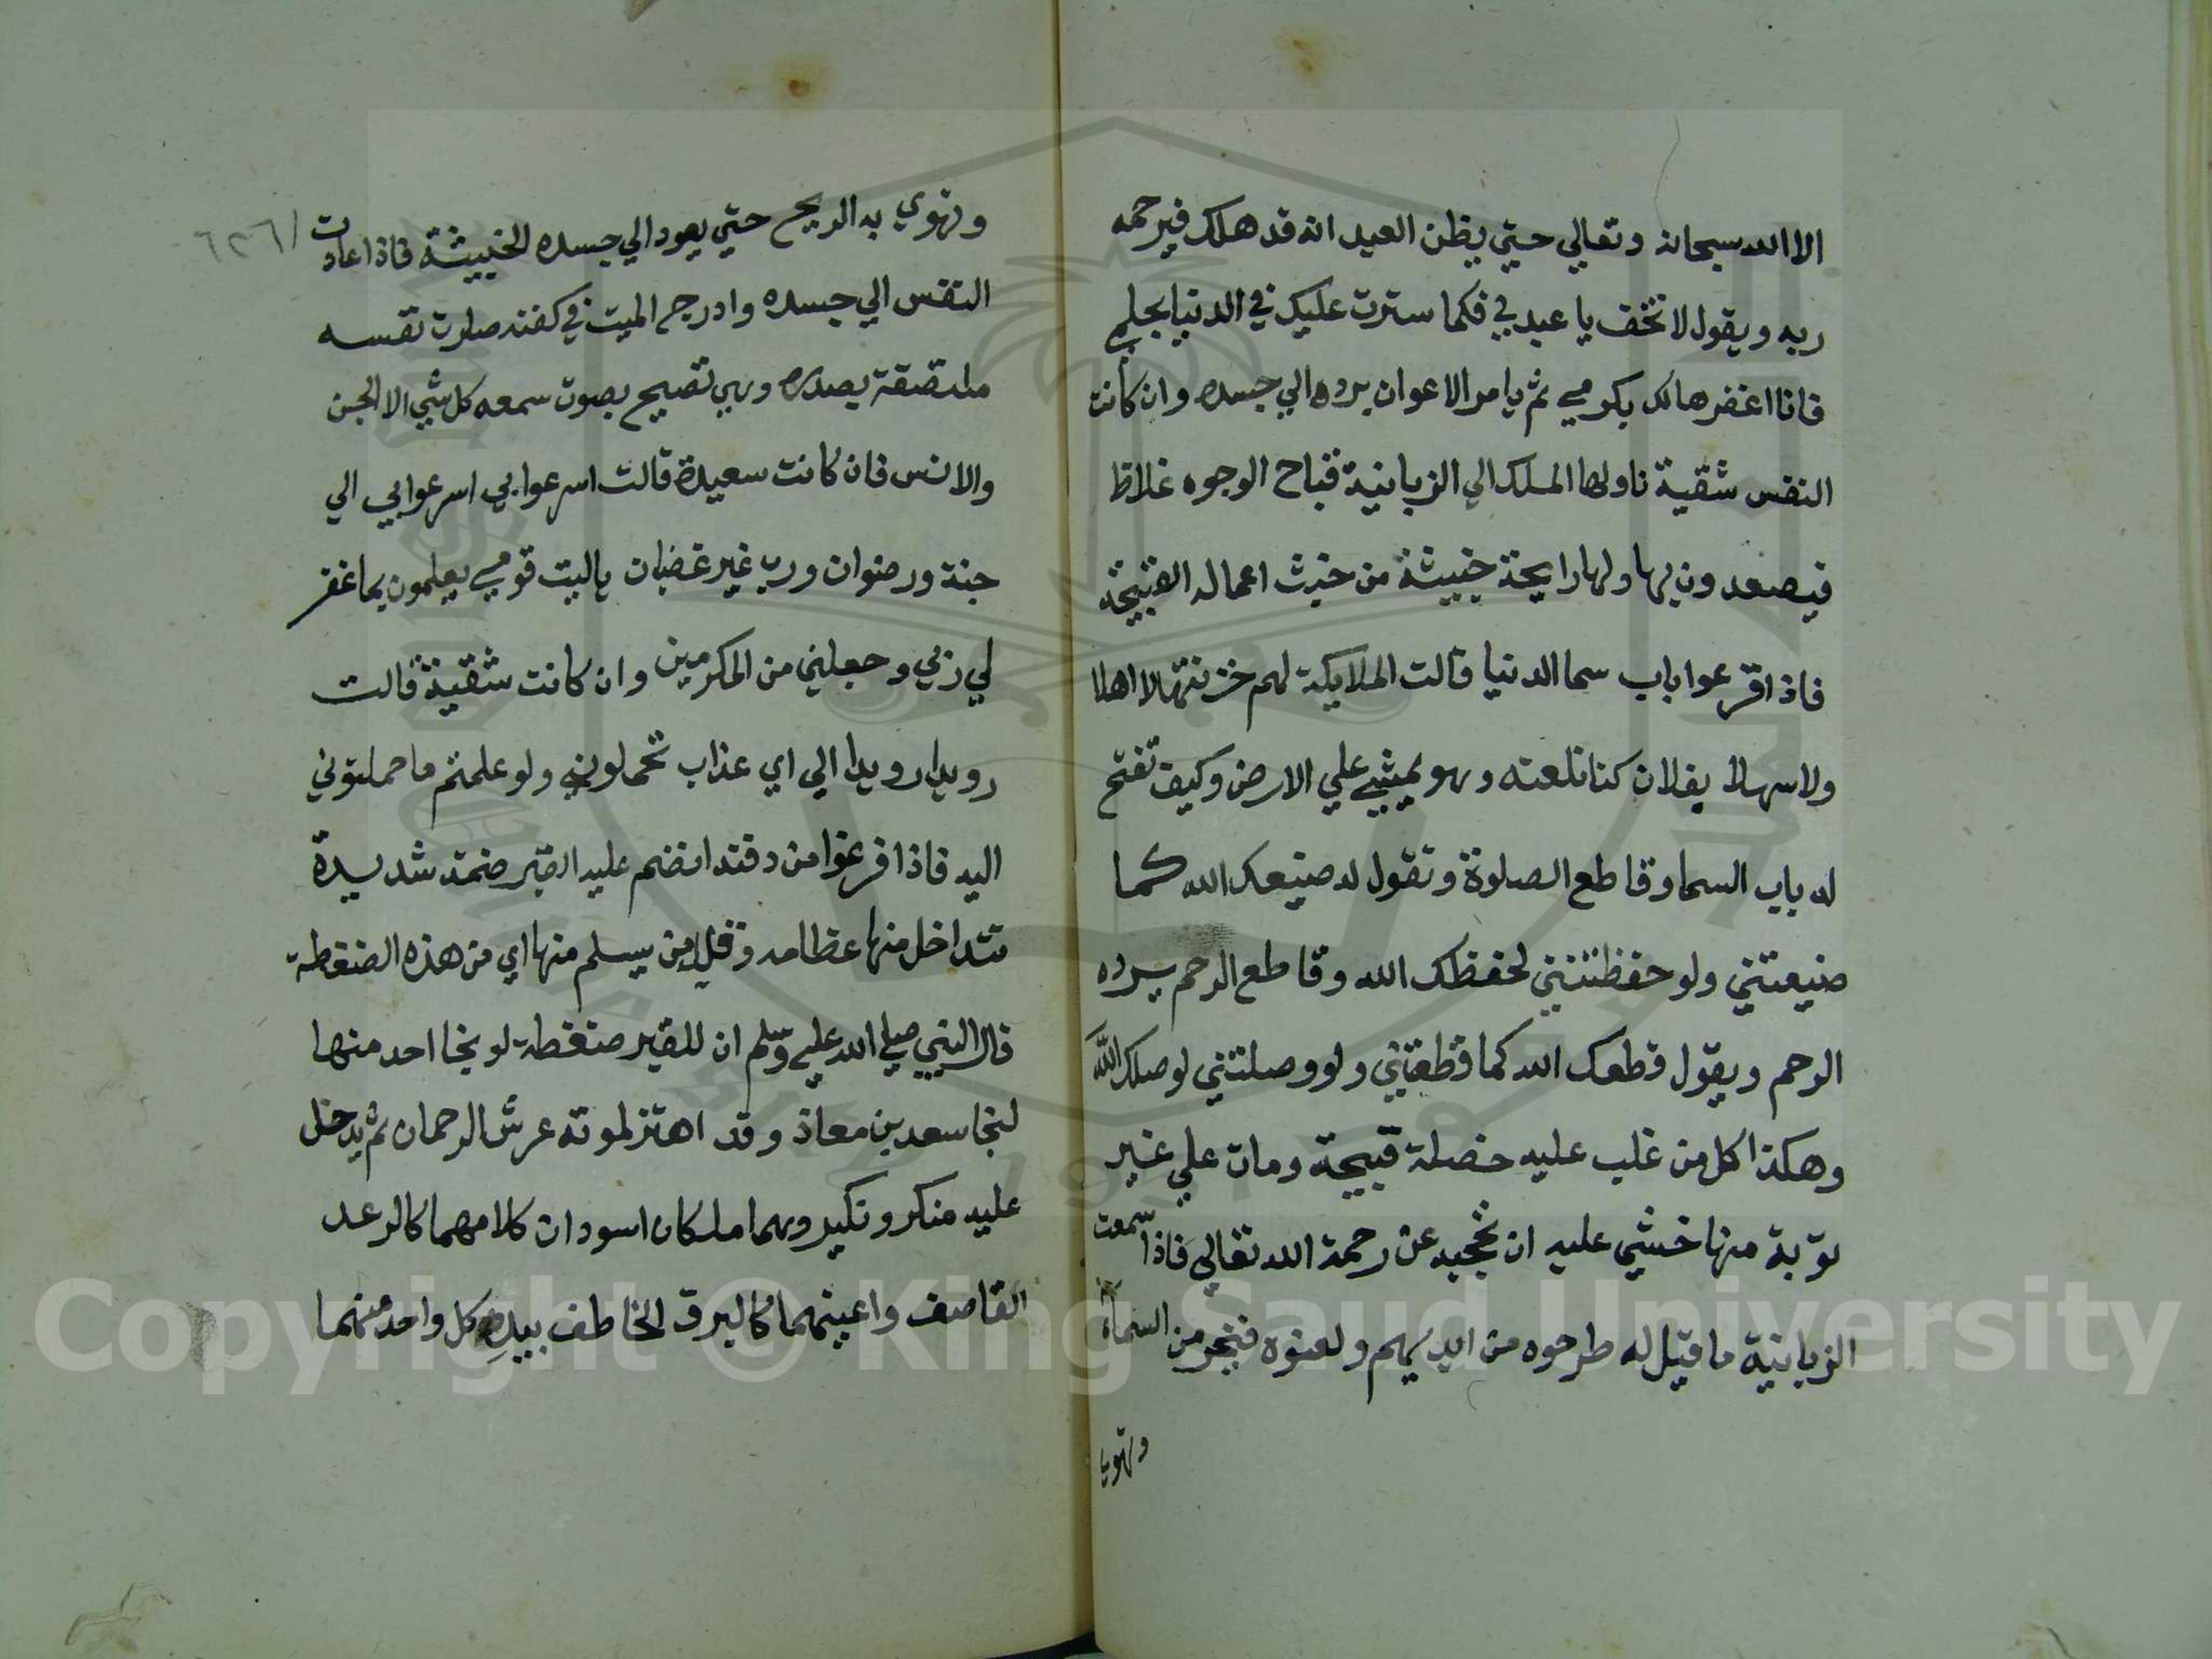 الا الله سبحانه وتعالي حتي يظن العبد انه قد هلك فيرحمه
ربه ويقول لا تخف يا عبدي فكما سترت عليك في الدنيا بحلمي
فانا اغفرها لك بكرمي ثم يامر الاعوان برده الي جسده وان كانت
النفس شقية ناولها الملك الي الزبانية قباح الوجوه غلاظ
فيصعدون بها ولها رايحة خبيثة من خبث اعماله القبيحة
فاذا قرعوا باب سما الدنيا قالت الملايكة لهم خزنتها لا اهلا
ولا سهلا بفلان كنا نلعنه وهو يمشي علي الارض وكيف تفتح
له باب السما وقاطع الصلوة وتقول له ضيعك الله كما
ضيعتني ولو حفظتني لحفظك الله وقاطع الرحم يرده
الرحم ويقول قطعك الله كما قطعتني ولو وصلتني لوصلك الله
وهكذا كل من غلب عليه خصلة قبيحة ومات علي غير
توبة منها خشي عليه ان تحجبه عن رحمة الله تعالي فاذا سمعت
الزبانية ما قيل له طرحوه من ايديهم ولعنوه فيخر من السماء
وتهوي
وتهوي به الريح حتي يعود الي جسده الخبيثة فاذا عادت
النفس الي جسده وادرج الميت في كفنه صارت نفسه
ملتصقة بصدره وهي تصيح بصوت سمعه كل شي الا الجن
والانس فان كانت سعيدة قالت اسرعوا بي اسرعوا بي الي
جنة ورضوان ورب غير غضبان يا ليت قومي يعلمون بما غفر
لي ربي وجعلني من المكرمين وان كانت شقية قالت
رويدا رويدا الي اي عذاب تحملوني ولو علمتم ما حملتوني
اليه فاذا فرغوا من دفنه انضم عليه القبر ضمة شديدة
تتداخل منها عظامه وقل من يسلم منها اي من هذه الضغطة
قال النبي صلي الله عليه وسلم ان للقبر ضغطة لو نجا احد منها
لنجا سعد بن معاذ وقد اهتز لموته عرش الرحمان ثم يدخل
عليه منكر ونكير وهما ملكان اسودان كلامهما كالرعد
القاصف واعينهما كالبرق الخاطف بيد كل واحد منهما
Copyright © King Saud University